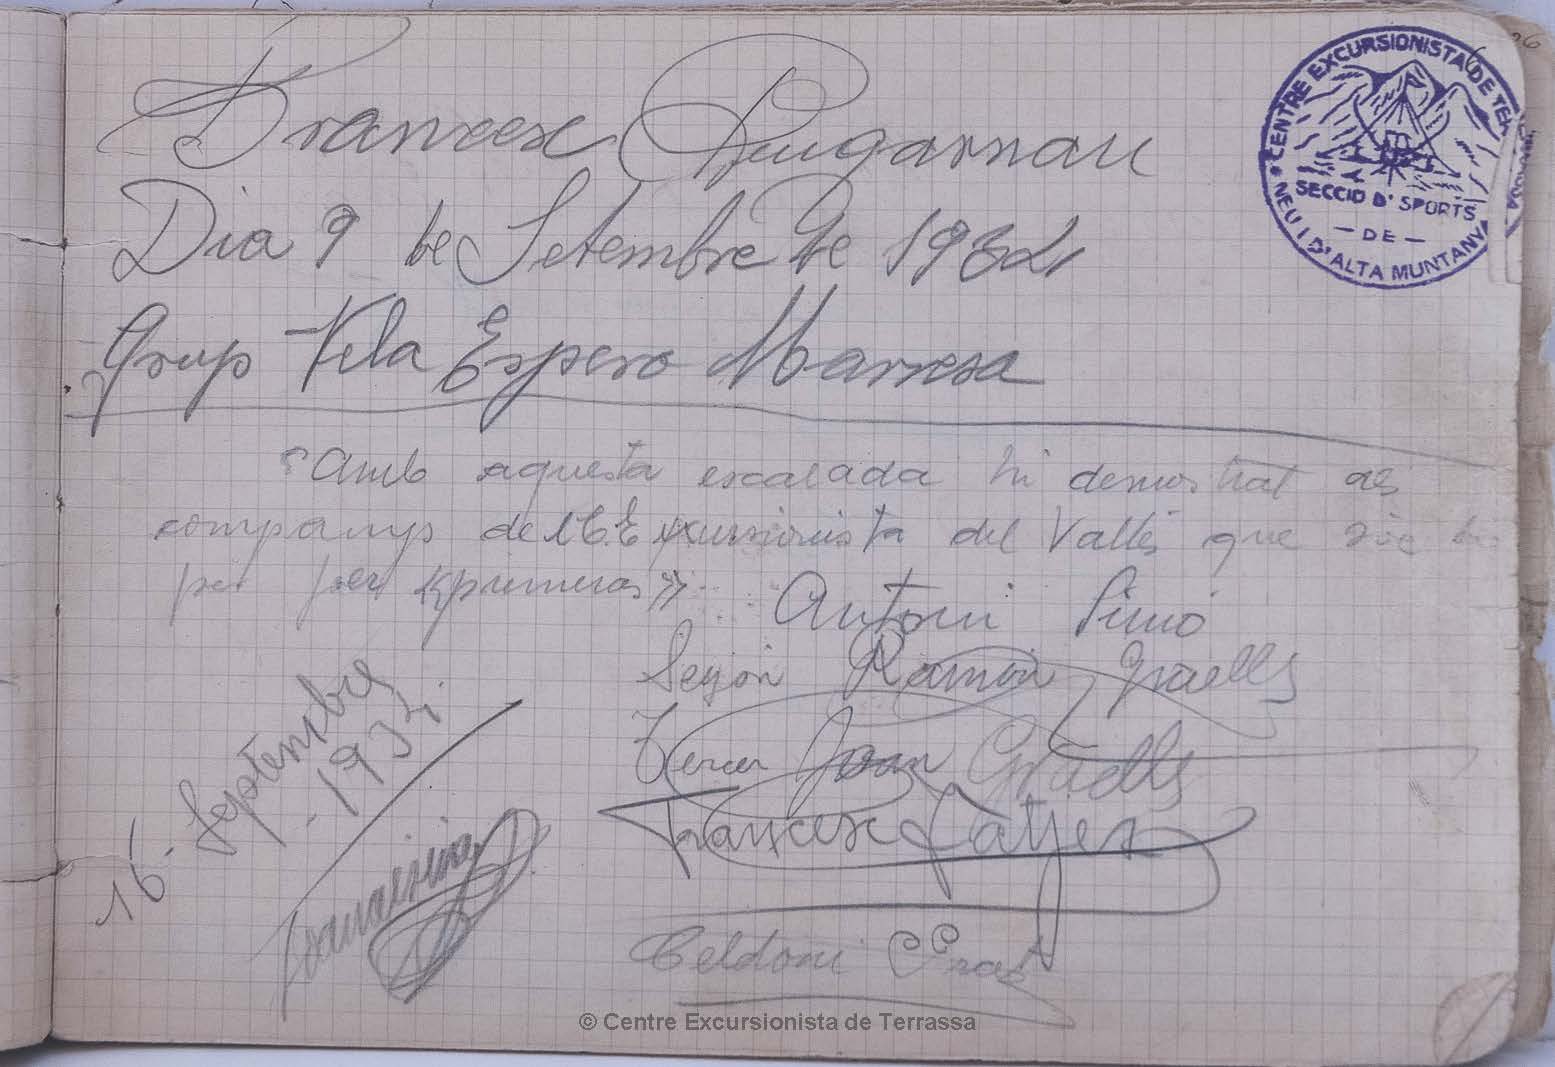 Francesc Puigarnau
Dia 9 de Setembre de 1934
Grup Vila Espero Manresa
Amb aquesta escalada hi demostrat als
companys del C. Excursionista del Vallés que sóc
per "primeras" Antoni Simó
Segón Ramón Graells
Tercer Joan Graells
Francesc
Celdoni Prat
16 - Septembre
- 1934
CENTRE EXCURSIONISTA DE TER
SECCIO D'SPORTS
- DE -
NEU I D'ALTA MUNTANYA
© Centre Excursionista de Terrassa